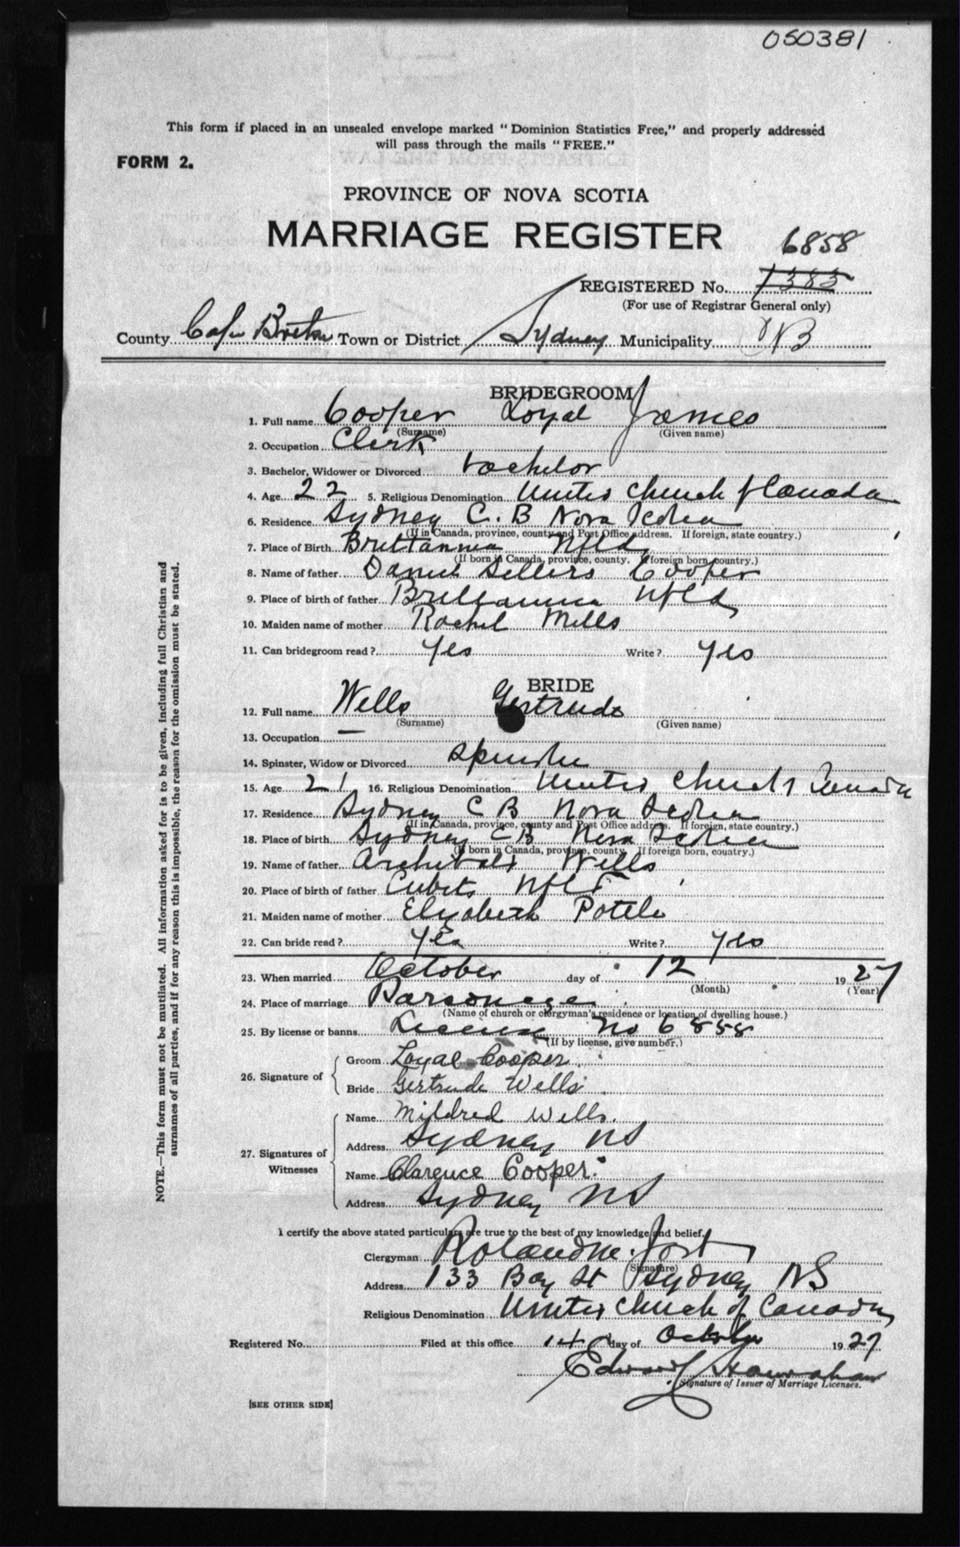 050381
This form if placed in an unsealed envelope marked "Dominion Statistics Free," and properly addressed
will pass through the mails "FREE."
FORM 2.
PROVINCE OF NOVA SCOTIA
MARRIAGE REGISTER
6858
REGISTERED No. 1383
(For use of Registrar General only)
County Cape Breton Town or District Sydney Municipality
BRIDEGROOM
1. Full name Cooper Loyal James
(Surname) (Given name)
2. Occupation Clerk
3. Bachelor, Widower or Divorced bachelor
4. Age 22 5. Religious Denomination United Church of Canada
6. Residence Sydney C. B Nova Scotia
(If in Canada, province, county and Post Office address. If foreign, state country.)
7. Place of Birth Brittannia Nfld
(If born in Canada, province, county. If foreign born, country.)
8. Name of father Daniel Sellers Cooper
9. Place of birth of father Brittannia Nfld
10. Maiden name of mother Rachel Mills
11. Can bridegroom read? Yes Write? Yes
BRIDE
12. Full name Wells Gertrude
(Surname) (Given name)
13. Occupation —
14. Spinster, Widow or Divorced Spinster
15. Age 21 16. Religious Denomination United Church Canada
17. Residence Sydney C B Nova Scotia
(If in Canada, province, county and Post Office address. If foreign, state country.)
18. Place of birth Sydney C B Nova Scotia
(If born in Canada, province, county. If foreign born, country.)
19. Name of father Archibald Wells
20. Place of birth of father Nfld
21. Maiden name of mother Elizabeth Pottle
22. Can bride read? Yes Write? Yes
23. When married October day of 12 1927
(Month) (Year)
24. Place of marriage Parsonage
(Name of church or clergyman's residence or location of dwelling house.)
25. By license or banns License No 6858
(If by license, give number.)
26. Signature of
Groom Loyal Cooper
Bride Gertrude Wells
27. Signatures of Witnesses
Name Mildred Wells.
Address Sydney NS
Name Clarence Cooper.
Address Sydney NS
I certify the above stated particulars are true to the best of my knowledge and belief.
Clergyman Roland M. Jost
(Signature)
Address 133 Bay St Sydney NS
Religious Denomination United Church of Canada
Registered No. Filed at this office 14 day of October 1927
Edward
Signature of Issuer of Marriage Licenses.
[SEE OTHER SIDE]
NOTE.—This form must not be mutilated. All information asked for is to be given, including full Christian and
surnames of all parties, and if for any reason this is impossible, the reason for the omission must be stated.